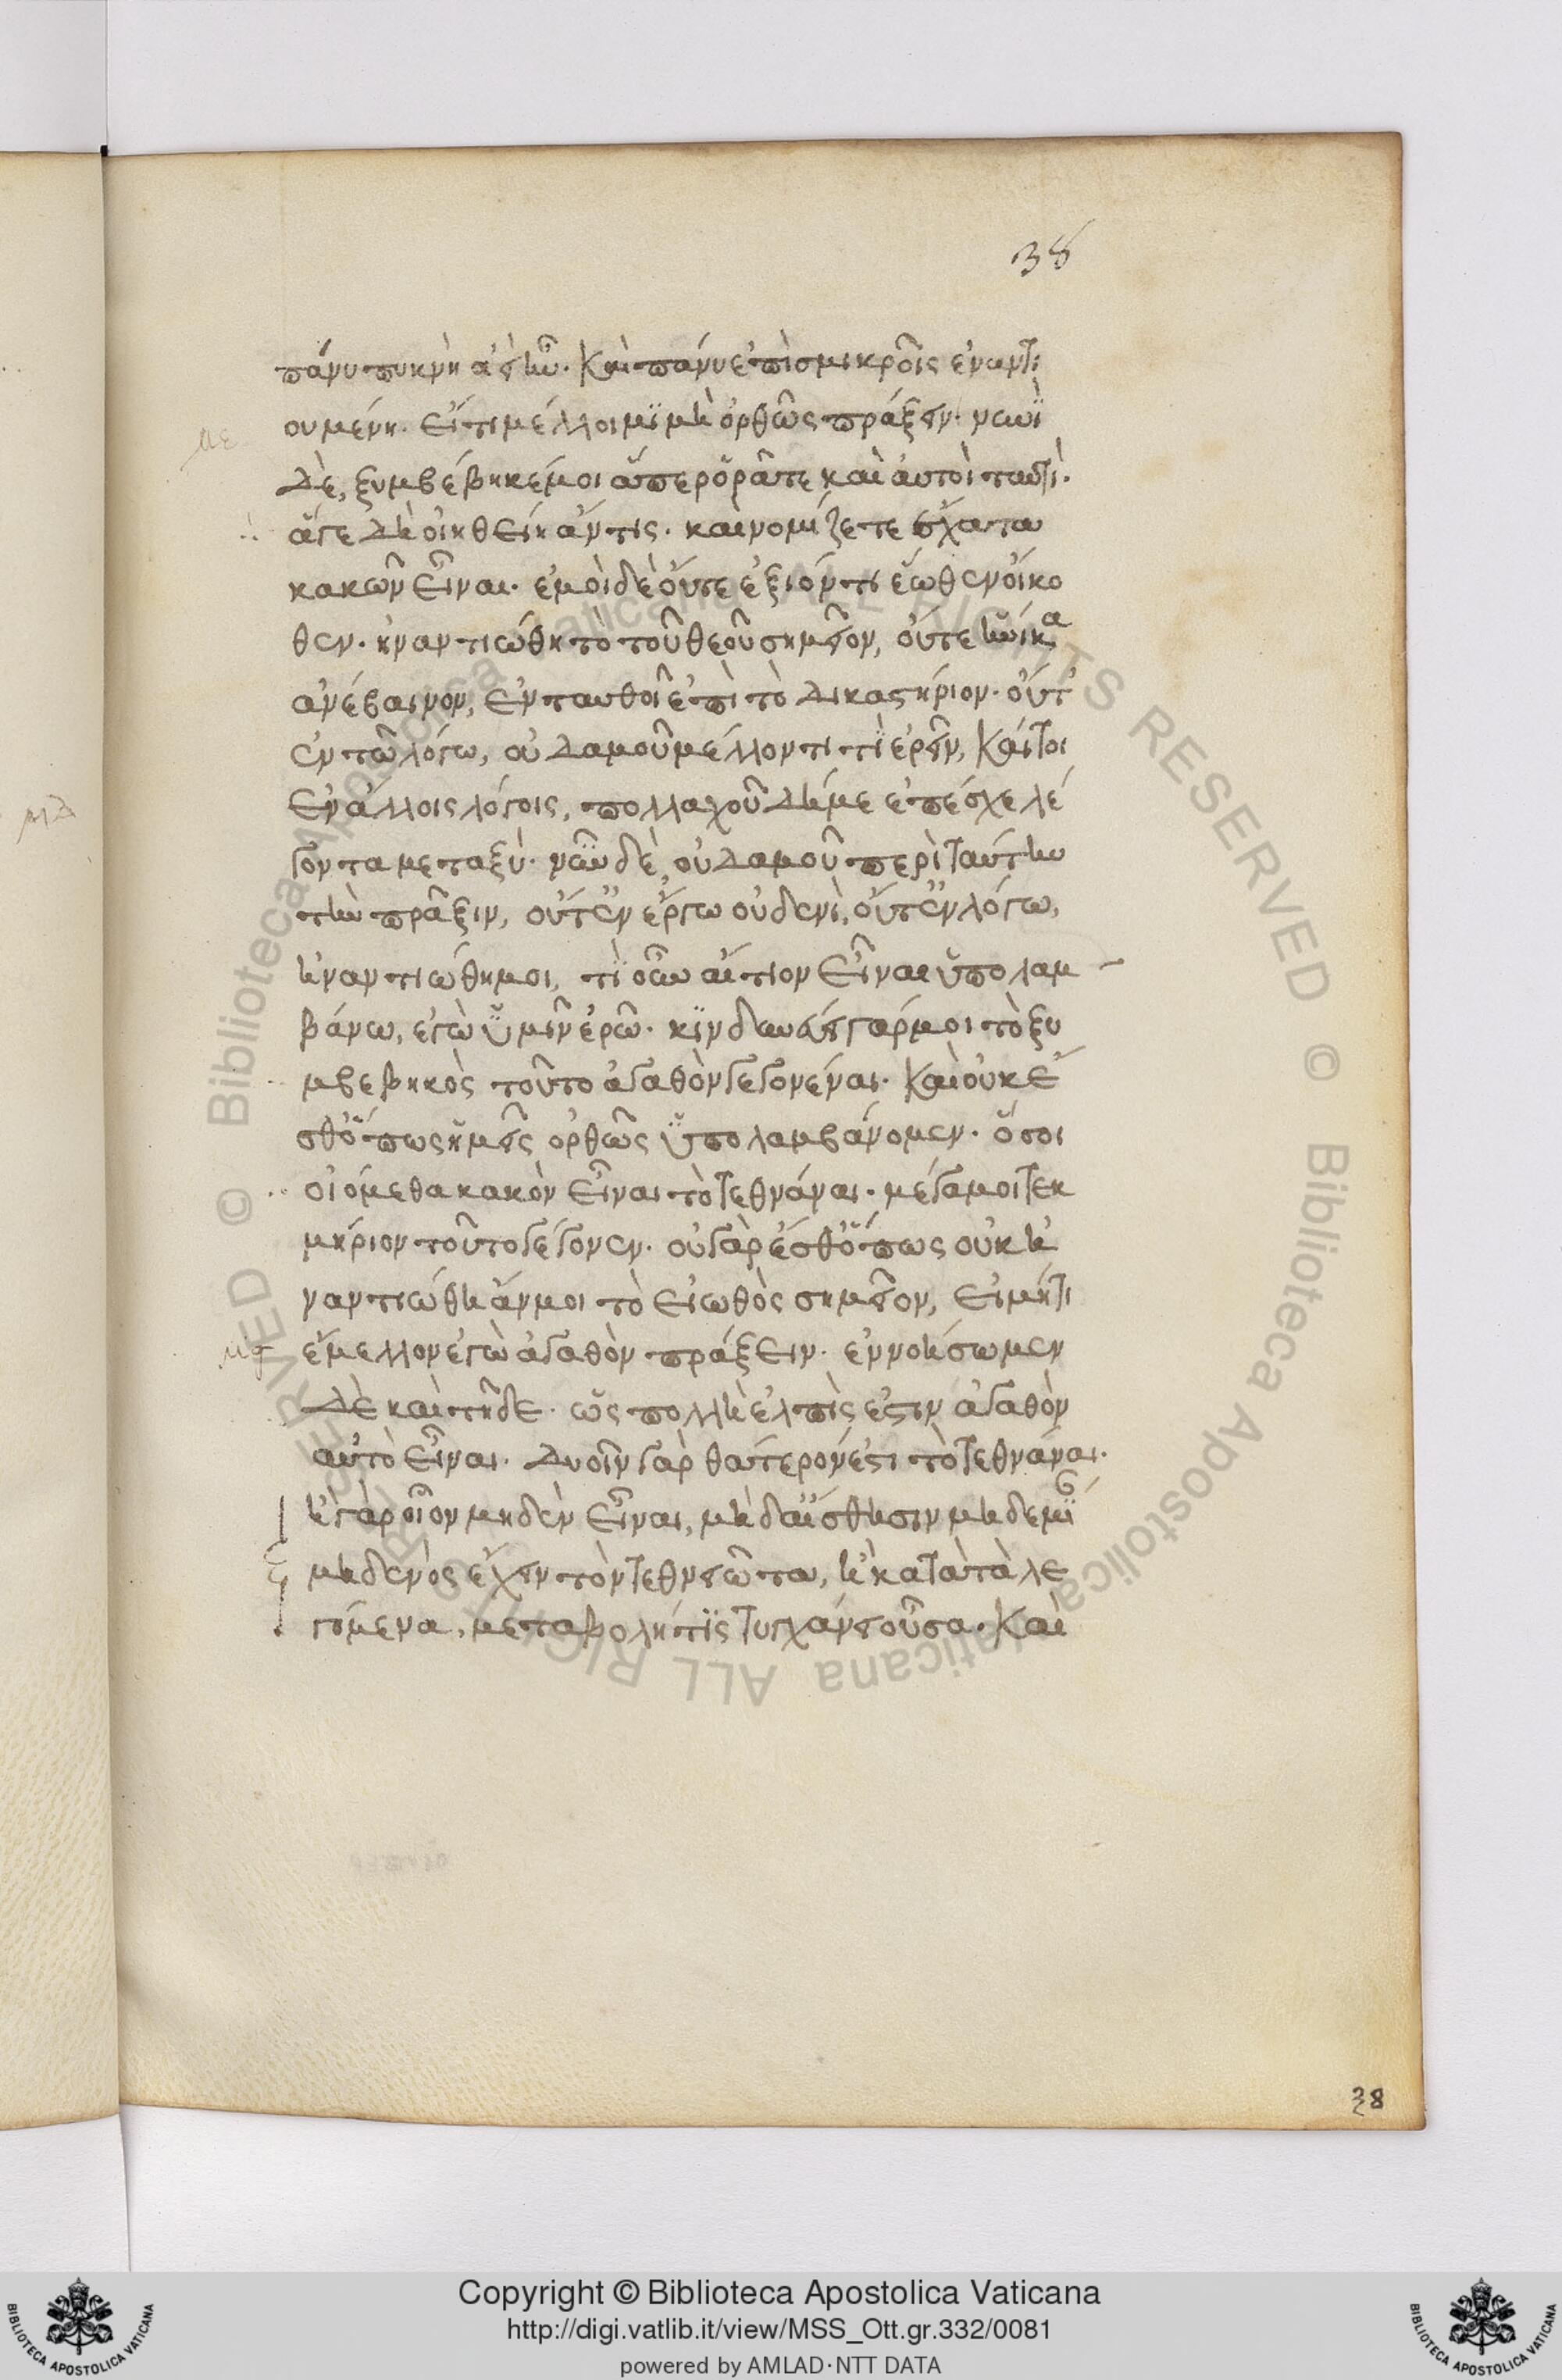 38
πάνυ πυκνὴ ἀεὶ ἦν. Καὶ πάνυ ἐπὶ σμικροῖς ἐναντι
ουμένη. εἴ τι μέλλοιμι μὴ ὀρθῶς πράξειν. νυνὶ
με
δὲ, ξυμβέβηκέ μοι ἅπερ ὁρᾶτε καὶ αὐτοὶ ταυτὶ.
ἅ γε δὴ οἰηθείη ἄν τις. καὶ νομίζετε ἔσχατα
κακῶν εἶναι. ἐμοὶ δὲ οὔτε ἐξιόντι ἕωθεν οἴκο
θεν. ἠναντιώθη τὸ τοῦ θεοῦ σημεῖον, οὔτε ἡνίκα
ἀνέβαινον, ἐνταυθοῖ ἐπὶ τὸ δικαστήριον. οὔτ'
ἐν τῶ λόγω, οὐδαμοῦ μέλλοντι τὶ ἐρεῖν, Καίτοι
ἐν ἄλλοις λόγοις, πολλαχοῦ δή με ἐπέσχε λέ
μδ
γοντα μεταξύ. νῦν δὲ, οὐδαμοῦ περὶ ταύτην
τὴν πρᾶξιν, οὔτ' ἐν ἔργω οὐδενὶ, οὔτ' ἐν λόγω,
ἠναντίωθή μοι, τί οὖν αἴτιον εἶναι ὑπολαμ
βάνω, ἐγὼ ὑμῖν ἐρῶ. κινδυνεύει γάρ μοι τὸ ξυ
μβεβηκὸς τοῦτο ἀγαθὸν γεγονέναι. Καὶ οὐκ ἔ
σθ' ὅπως ἡμεῖς ὀρθῶς ὑπολαμβάνομεν. ὅσοι
οἰόμεθα κακὸν εἶναι τὸ τεθνάναι. μέγα μοι τεκ
μήριον τοῦτο γέγονεν. οὐ γὰρ ἔσθ' ὅπως οὐκ ἠ
ναντιώθη ἄν μοι τὸ εἰωθὸς σημεῖον, εἰ μή τι
ἔμελλον ἐγὼ ἀγαθὸν πράξειν. ἐννοήσωμεν
μϛ
δὲ καὶ τῆδε. ὡς πολλὴ ἐλπὶς ἐστιν ἀγαθὸν
αὐτὸ εἶναι. δυοῖν γὰρ θάτερόν ἐστι τὸ τεθνάναι.
ἢ γὰρ οἷον μηδὲν εἶναι, μὴ δ' αἴσθησιν μηδεμί
μηδενὸς ἔχειν τὸν τεθνεῶτα, ἢ κατὰ τὰ λε
γόμενα, μεταβολή τις τυγχάνει οὖσα. Καὶ
38
Copyright © Biblioteca Apostolica Vaticana
http://digi.vatlib.it/view/MSS_Ott.gr.332/0081
powered by AMLAD·NTT DATA
BIBLIOTECA APOSTOLICA VATICANA
BIBLIOTECA APOSTOLICA VATICANA
© Biblioteca Apostolica Vaticana ALL RIGHTS RESERVED © Biblioteca Apostolica Vaticana ALL RIGHTS RESERVED